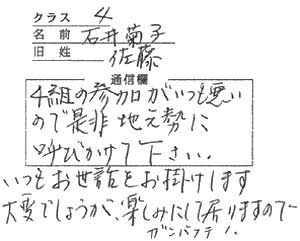 クラス 4
名前 石井菊子
旧姓 佐藤
通信欄
4組の参加がいつも悪い
ので是非地元勢に
呼びかけて下さい…
いつもお世話をお掛けします
大変でしょうが、楽しみにして居りますので
ガンバッテ!